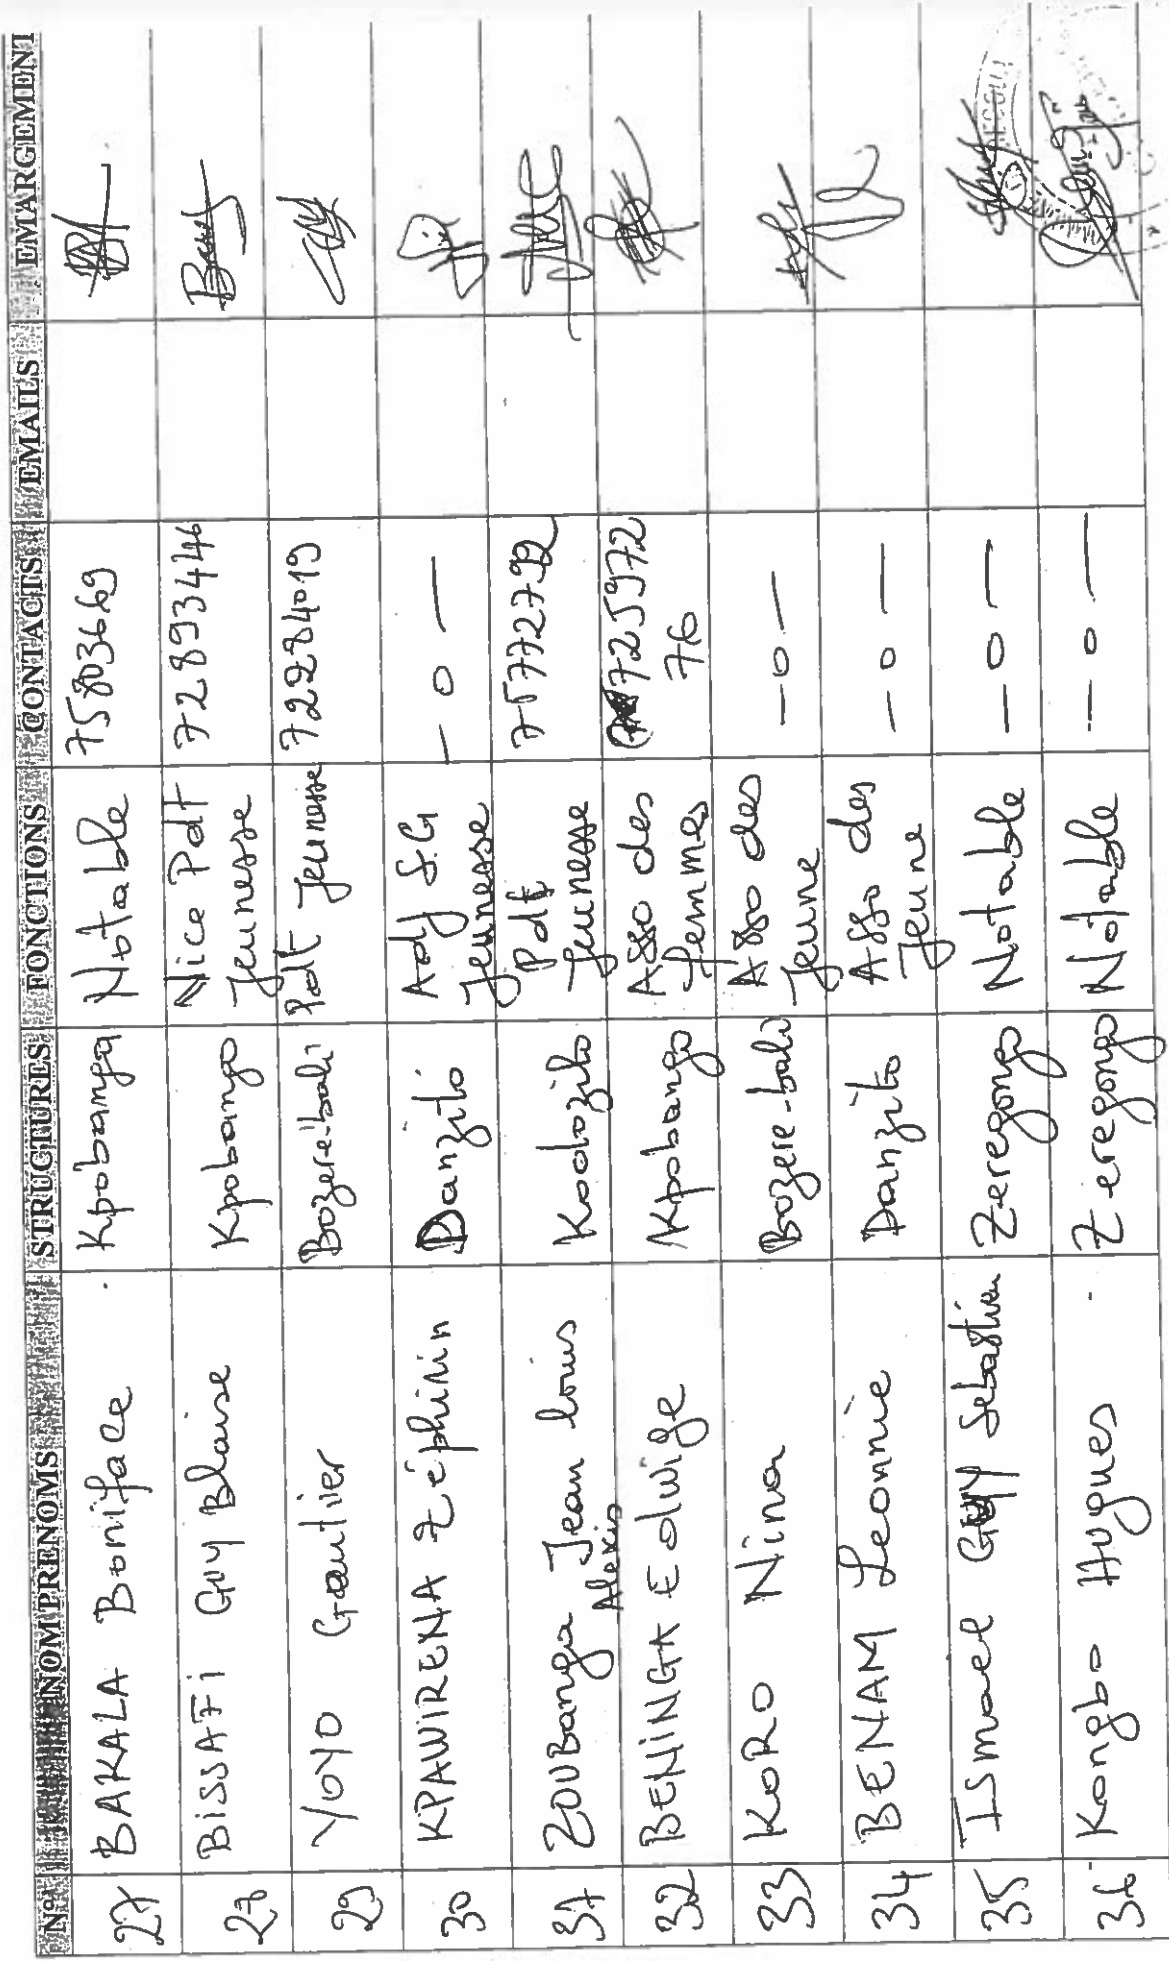 N° NOM PRENOMS STRUCTURES FONCTIONS CONTACTS EMAILS EMARGEMENT
27 BAKALA Boniface Kpobanga Notable 75803669
28 BISSAFI Guy Blaise Kpobango Vice Pdt Jeunesse 72893446
29 YOYO Gautier Bozere-bali Pdt Jeunesse 72284019
30 KPAWIRENA Zéphirin Danzito Adj S.G Jeunesse — o —
31 ZOUBanga Jean louis Alexis Kodozilo Pdt Jeunesse
32 BENINGA Edwige Kpobango Asso des femmes 725972 76
33 KORO Nina Bozere-bali Asso des Jeune — o —
34 BENAM Leonnie Danzito Asso des Jeune — o —
35 ISmael GUY Sebastien Zeregongo Notable — o —
36 Kongbo Hugues Zeregongo Notable — o —